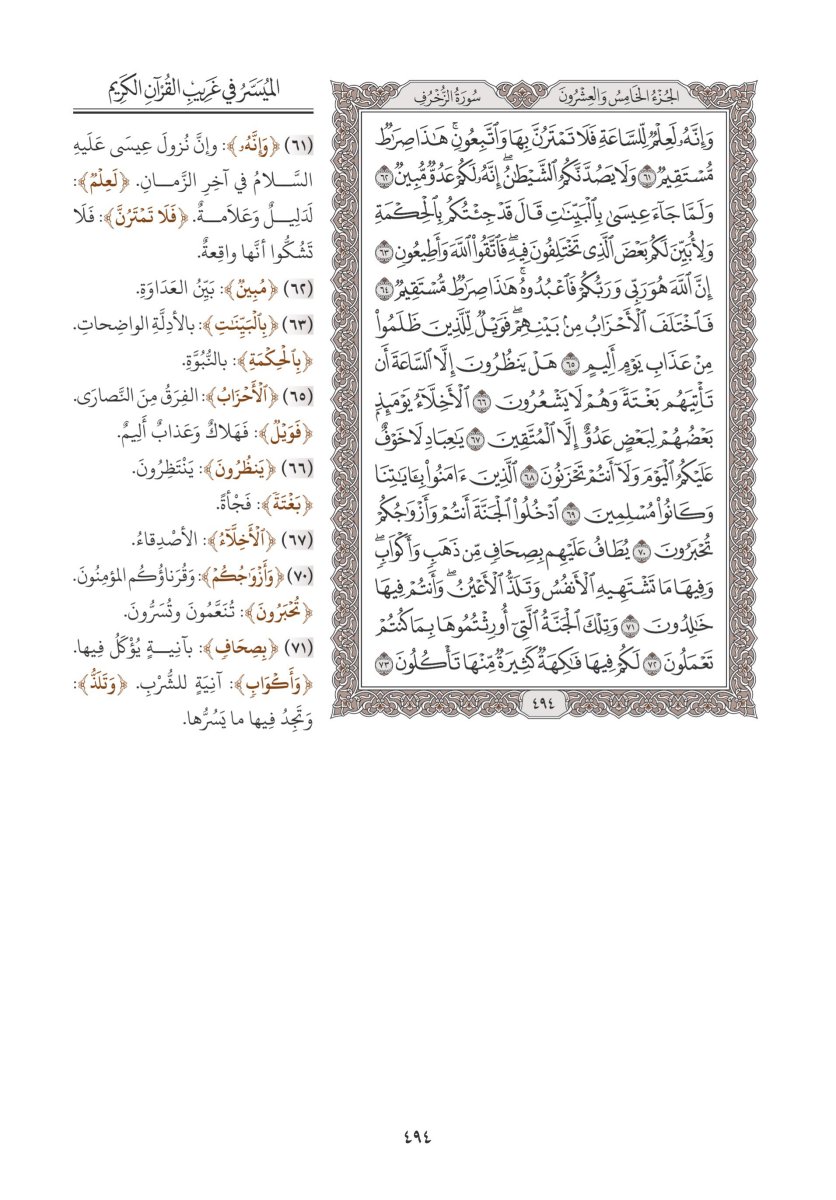 الجُزْءُ الخَامِسُ وَالعِشْرُونَ
سُورَةُ الزُّخْرُفِ
وَإِنَّهُۥ لَعِلْمٌ لِّلسَّاعَةِ فَلَا تَمْتَرُنَّ بِهَا وَٱتَّبِعُونِۚ هَٰذَا صِرَٰطٌ
مُّسْتَقِيمٌ ٦١ وَلَا يَصُدَّنَّكُمُ ٱلشَّيْطَٰنُۖ إِنَّهُۥ لَكُمْ عَدُوٌّ مُّبِينٌ ٦٢
وَلَمَّا جَآءَ عِيسَىٰ بِٱلْبَيِّنَٰتِ قَالَ قَدْ جِئْتُكُم بِٱلْحِكْمَةِ
وَلِأُبَيِّنَ لَكُم بَعْضَ ٱلَّذِى تَخْتَلِفُونَ فِيهِۖ فَٱتَّقُوا۟ ٱللَّهَ وَأَطِيعُونِ ٦٣
إِنَّ ٱللَّهَ هُوَ رَبِّى وَرَبُّكُمْ فَٱعْبُدُوهُۚ هَٰذَا صِرَٰطٌ مُّسْتَقِيمٌ ٦٤
فَٱخْتَلَفَ ٱلْأَحْزَابُ مِنۢ بَيْنِهِمْۖ فَوَيْلٌ لِّلَّذِينَ ظَلَمُوا۟
مِنْ عَذَابِ يَوْمٍ أَلِيمٍ ٦٥ هَلْ يَنظُرُونَ إِلَّا ٱلسَّاعَةَ أَن
تَأْتِيَهُم بَغْتَةً وَهُمْ لَا يَشْعُرُونَ ٦٦ ٱلْأَخِلَّآءُ يَوْمَئِذٍۭ
بَعْضُهُمْ لِبَعْضٍ عَدُوٌّ إِلَّا ٱلْمُتَّقِينَ ٦٧ يَٰعِبَادِ لَا خَوْفٌ
عَلَيْكُمُ ٱلْيَوْمَ وَلَآ أَنتُمْ تَحْزَنُونَ ٦٨ ٱلَّذِينَ ءَامَنُوا۟ بِـَٔايَٰتِنَا
وَكَانُوا۟ مُسْلِمِينَ ٦٩ ٱدْخُلُوا۟ ٱلْجَنَّةَ أَنتُمْ وَأَزْوَٰجُكُمْ
تُحْبَرُونَ ٧٠ يُطَافُ عَلَيْهِم بِصِحَافٍ مِّن ذَهَبٍ وَأَكْوَابٍۖ
وَفِيهَا مَا تَشْتَهِيهِ ٱلْأَنفُسُ وَتَلَذُّ ٱلْأَعْيُنُۖ وَأَنتُمْ فِيهَا
خَٰلِدُونَ ٧١ وَتِلْكَ ٱلْجَنَّةُ ٱلَّتِىٓ أُورِثْتُمُوهَا بِمَا كُنتُمْ
تَعْمَلُونَ ٧٢ لَكُمْ فِيهَا فَٰكِهَةٌ كَثِيرَةٌ مِّنْهَا تَأْكُلُونَ ٧٣
٤٩٤
المُيَسَّرُ في غَرِيبِ القُرْآنِ الكَرِيم
(٦١) ﴿وَإِنَّهُۥ﴾: وإنَّ نُزولَ عِيسَى عَلَيهِ
السَّلامُ في آخِرِ الزَّمانِ. ﴿لَعِلْمٌ﴾:
لَدَلِيلٌ وَعَلَامَةٌ. ﴿فَلَا تَمْتَرُنَّ﴾: فَلَا
تَشُكُّوا أنَّها واقِعةٌ.
(٦٢) ﴿مُبِينٌ﴾: بَيِّنُ العَدَاوَةِ.
(٦٣) ﴿بِٱلْبَيِّنَٰتِ﴾: بالأدِلَّةِ الواضِحاتِ.
﴿بِٱلْحِكْمَةِ﴾: بالنُّبُوَّةِ.
(٦٥) ﴿ٱلْأَحْزَابُ﴾: الفِرَقُ مِنَ النَّصارَى.
﴿فَوَيْلٌ﴾: فَهَلاكٌ وَعَذابٌ أَلِيمٌ.
(٦٦) ﴿يَنظُرُونَ﴾: يَنْتَظِرُونَ.
﴿بَغْتَةً﴾: فَجْأةً.
(٦٧) ﴿ٱلْأَخِلَّآءُ﴾: الأصْدِقاءُ.
(٧٠) ﴿وَأَزْوَٰجُكُمْ﴾: وَقُرَناؤُكُم المؤمِنُونَ.
﴿تُحْبَرُونَ﴾: تُنَعَّمُونَ وتُسَرُّونَ.
(٧١) ﴿بِصِحَافٍ﴾: بآنِيةٍ يُؤْكَلُ فِيها.
﴿وَأَكْوَابٍ﴾: آنِيَةٍ للشُّرْبِ. ﴿وَتَلَذُّ﴾:
وَتَجِدُ فِيها ما يَسُرُّها.
٤٩٤